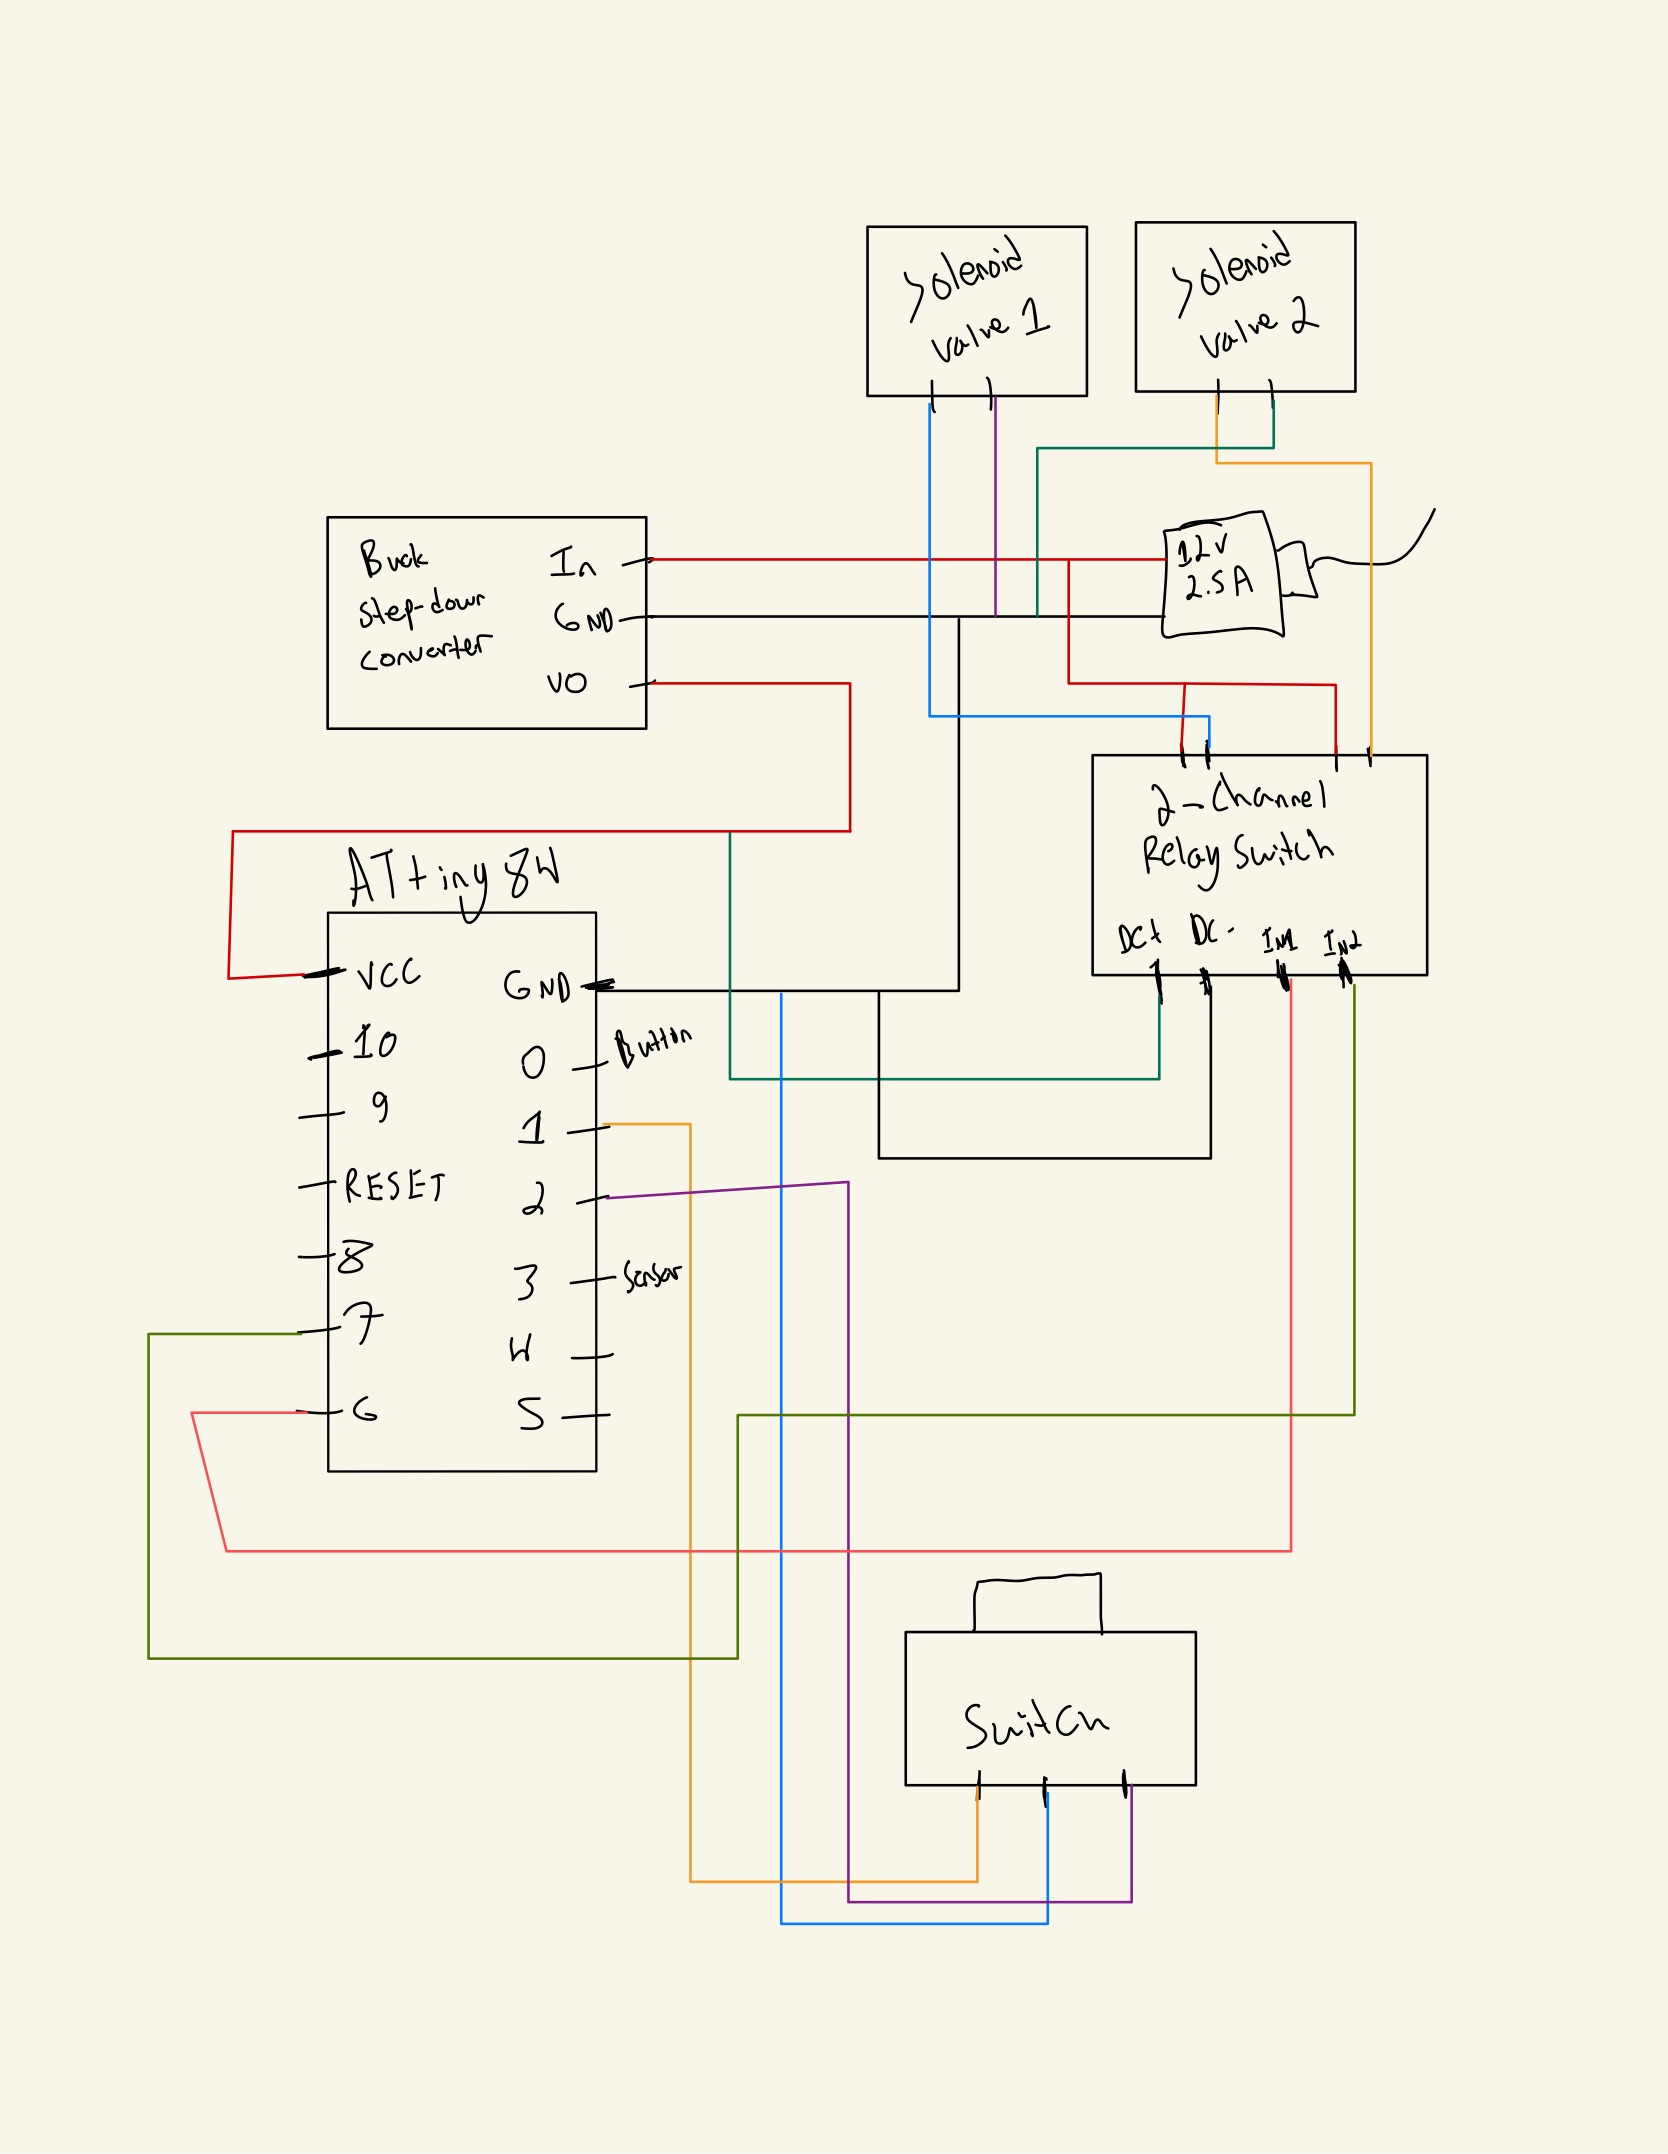 Solenoid
valve 1
Solenoid
valve 2
Buck
Step-down
converter
In
GND
VO
12V
2.5A
2-Channel
Relay Switch
DC+ DC- IN1 IN2
ATtiny84
VCC
10
9
RESET
8
7
6
GND
0 Button
1
2
3 Sensor
4
5
Switch